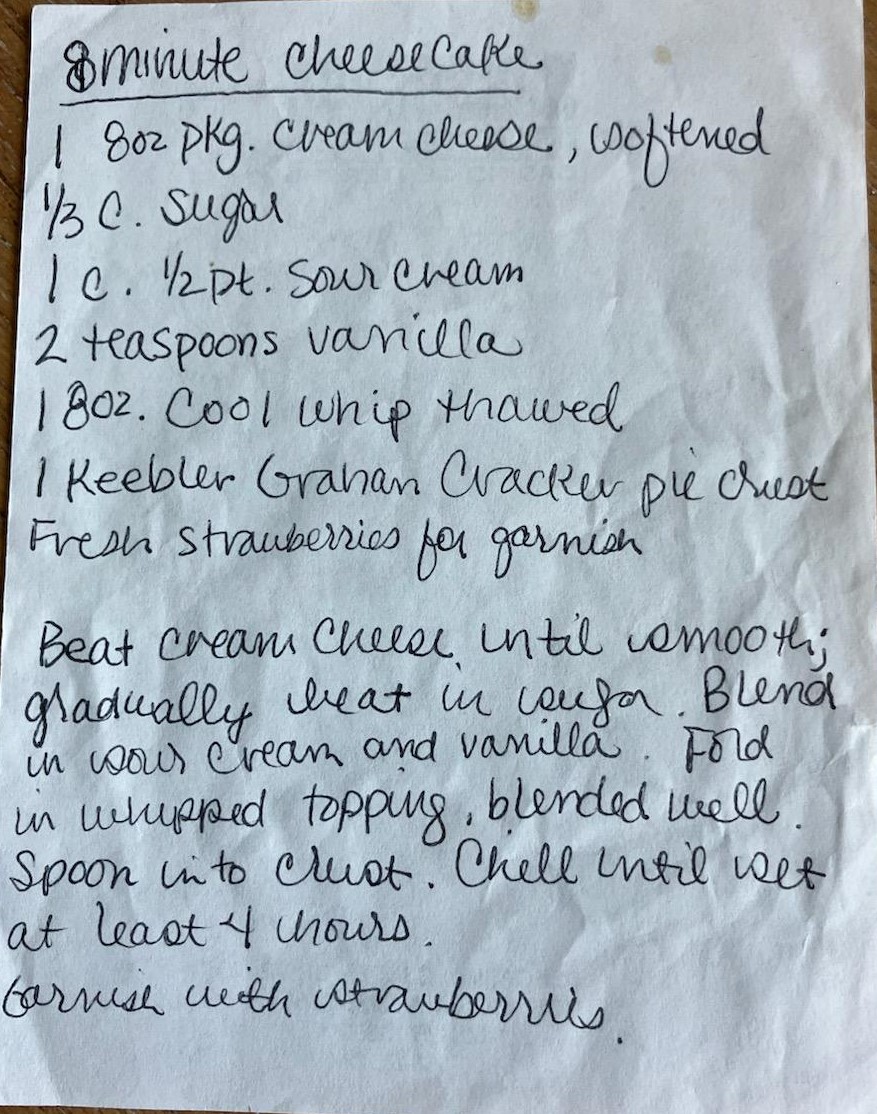 8 minute cheesecake
1 8oz pkg. cream cheese, softened
1/3 C. Sugar
1 C. 1/2 pt. Sour cream
2 teaspoons vanilla
1 8oz. Cool whip thawed
1 Keebler Grahan Cracker pie crust
Fresh strawberries for garnish
Beat cream cheese until smooth;
gradually beat in sugar. Blend
in sour cream and vanilla. Fold
in whipped topping, blended well.
Spoon into crust. Chill until set
at least 4 hours.
Garnish with strawberries.